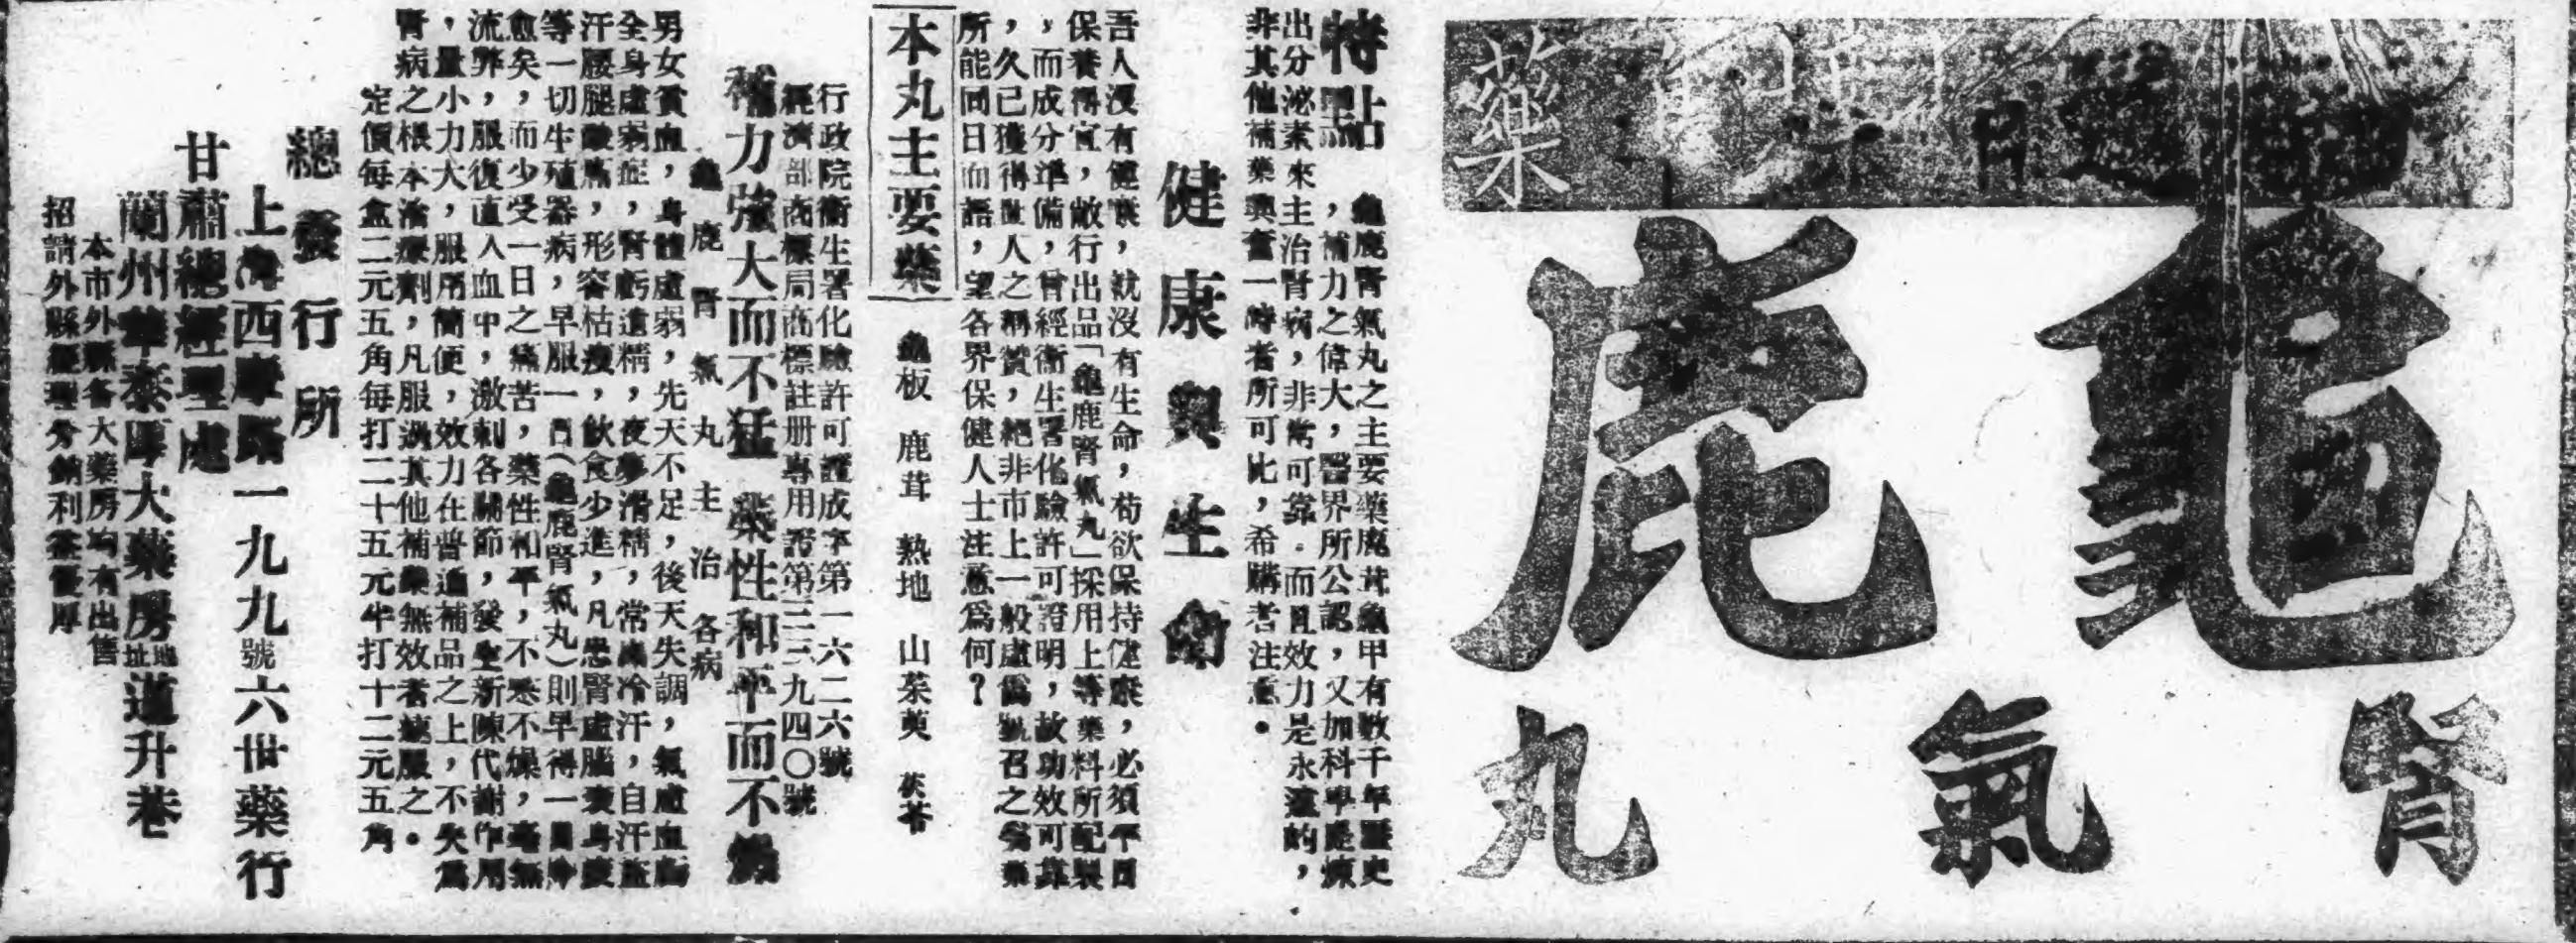 龜鹿
腎氣丸
藥
特點
龜鹿腎氣丸之主要藥鹿茸龜甲有數千年歷史
，補力之偉大，醫界所公認，又加科學提煉
出分泌素來主治腎病，非常可靠．而且效力是永遠的，
非其他補藥興奮一時者所可比，希購者注意。
健康與生命
吾人沒有健康，就沒有生命，苟欲保持健康，必須平日
保養得宜，敝行出品「龜鹿腎氣丸」採用上等藥料所配製
，而成分準備，曾經衛生署化驗許可證明，故功效可靠
，久已獲得世人之稱贊，絕非市上一般虛偽號召之劣藥
所能同日而語，望各界保健人士注意為何？
本丸主要藥
龜板 鹿茸 熟地 山茱萸 茯苓
行政院衛生署化驗許可證成字第一六二六號
經濟部商標局商標註册專用證第三三九四〇號
補力強大而不猛 藥性和平而不燥
龜鹿腎氣丸主治各病
男女貧血，身體虛弱，先天不足，後天失調，氣虛血虧
全身虛弱症，腎虧遺精，夜夢滑精，常出冷汗，自汗盜
汗腰腿酸痛，形容枯瘦，飲食少進，凡患腎虛腦衰身痠
等一切生殖器病，早服一日（龜鹿腎氣丸）則早得一日痊
愈矣，而少受一日之痛苦，藥性和平，不寒不燥，毫無
流弊，服復直入血中，激刺各關節，發生新陳代謝作用
，量小力大，服用簡便，效力在普通補品之上，不失為
腎病之根本治療劑，凡服過其他補藥無效者速服之。
定價每盒二元五角每打二十五元半打十二元五角
總發行所
上海西摩路一九九號六世藥行
甘肅總經理處
蘭州華泰厚大藥房地址道升巷
本市外縣各大藥房均有出售
招請外縣經理分銷利益優厚